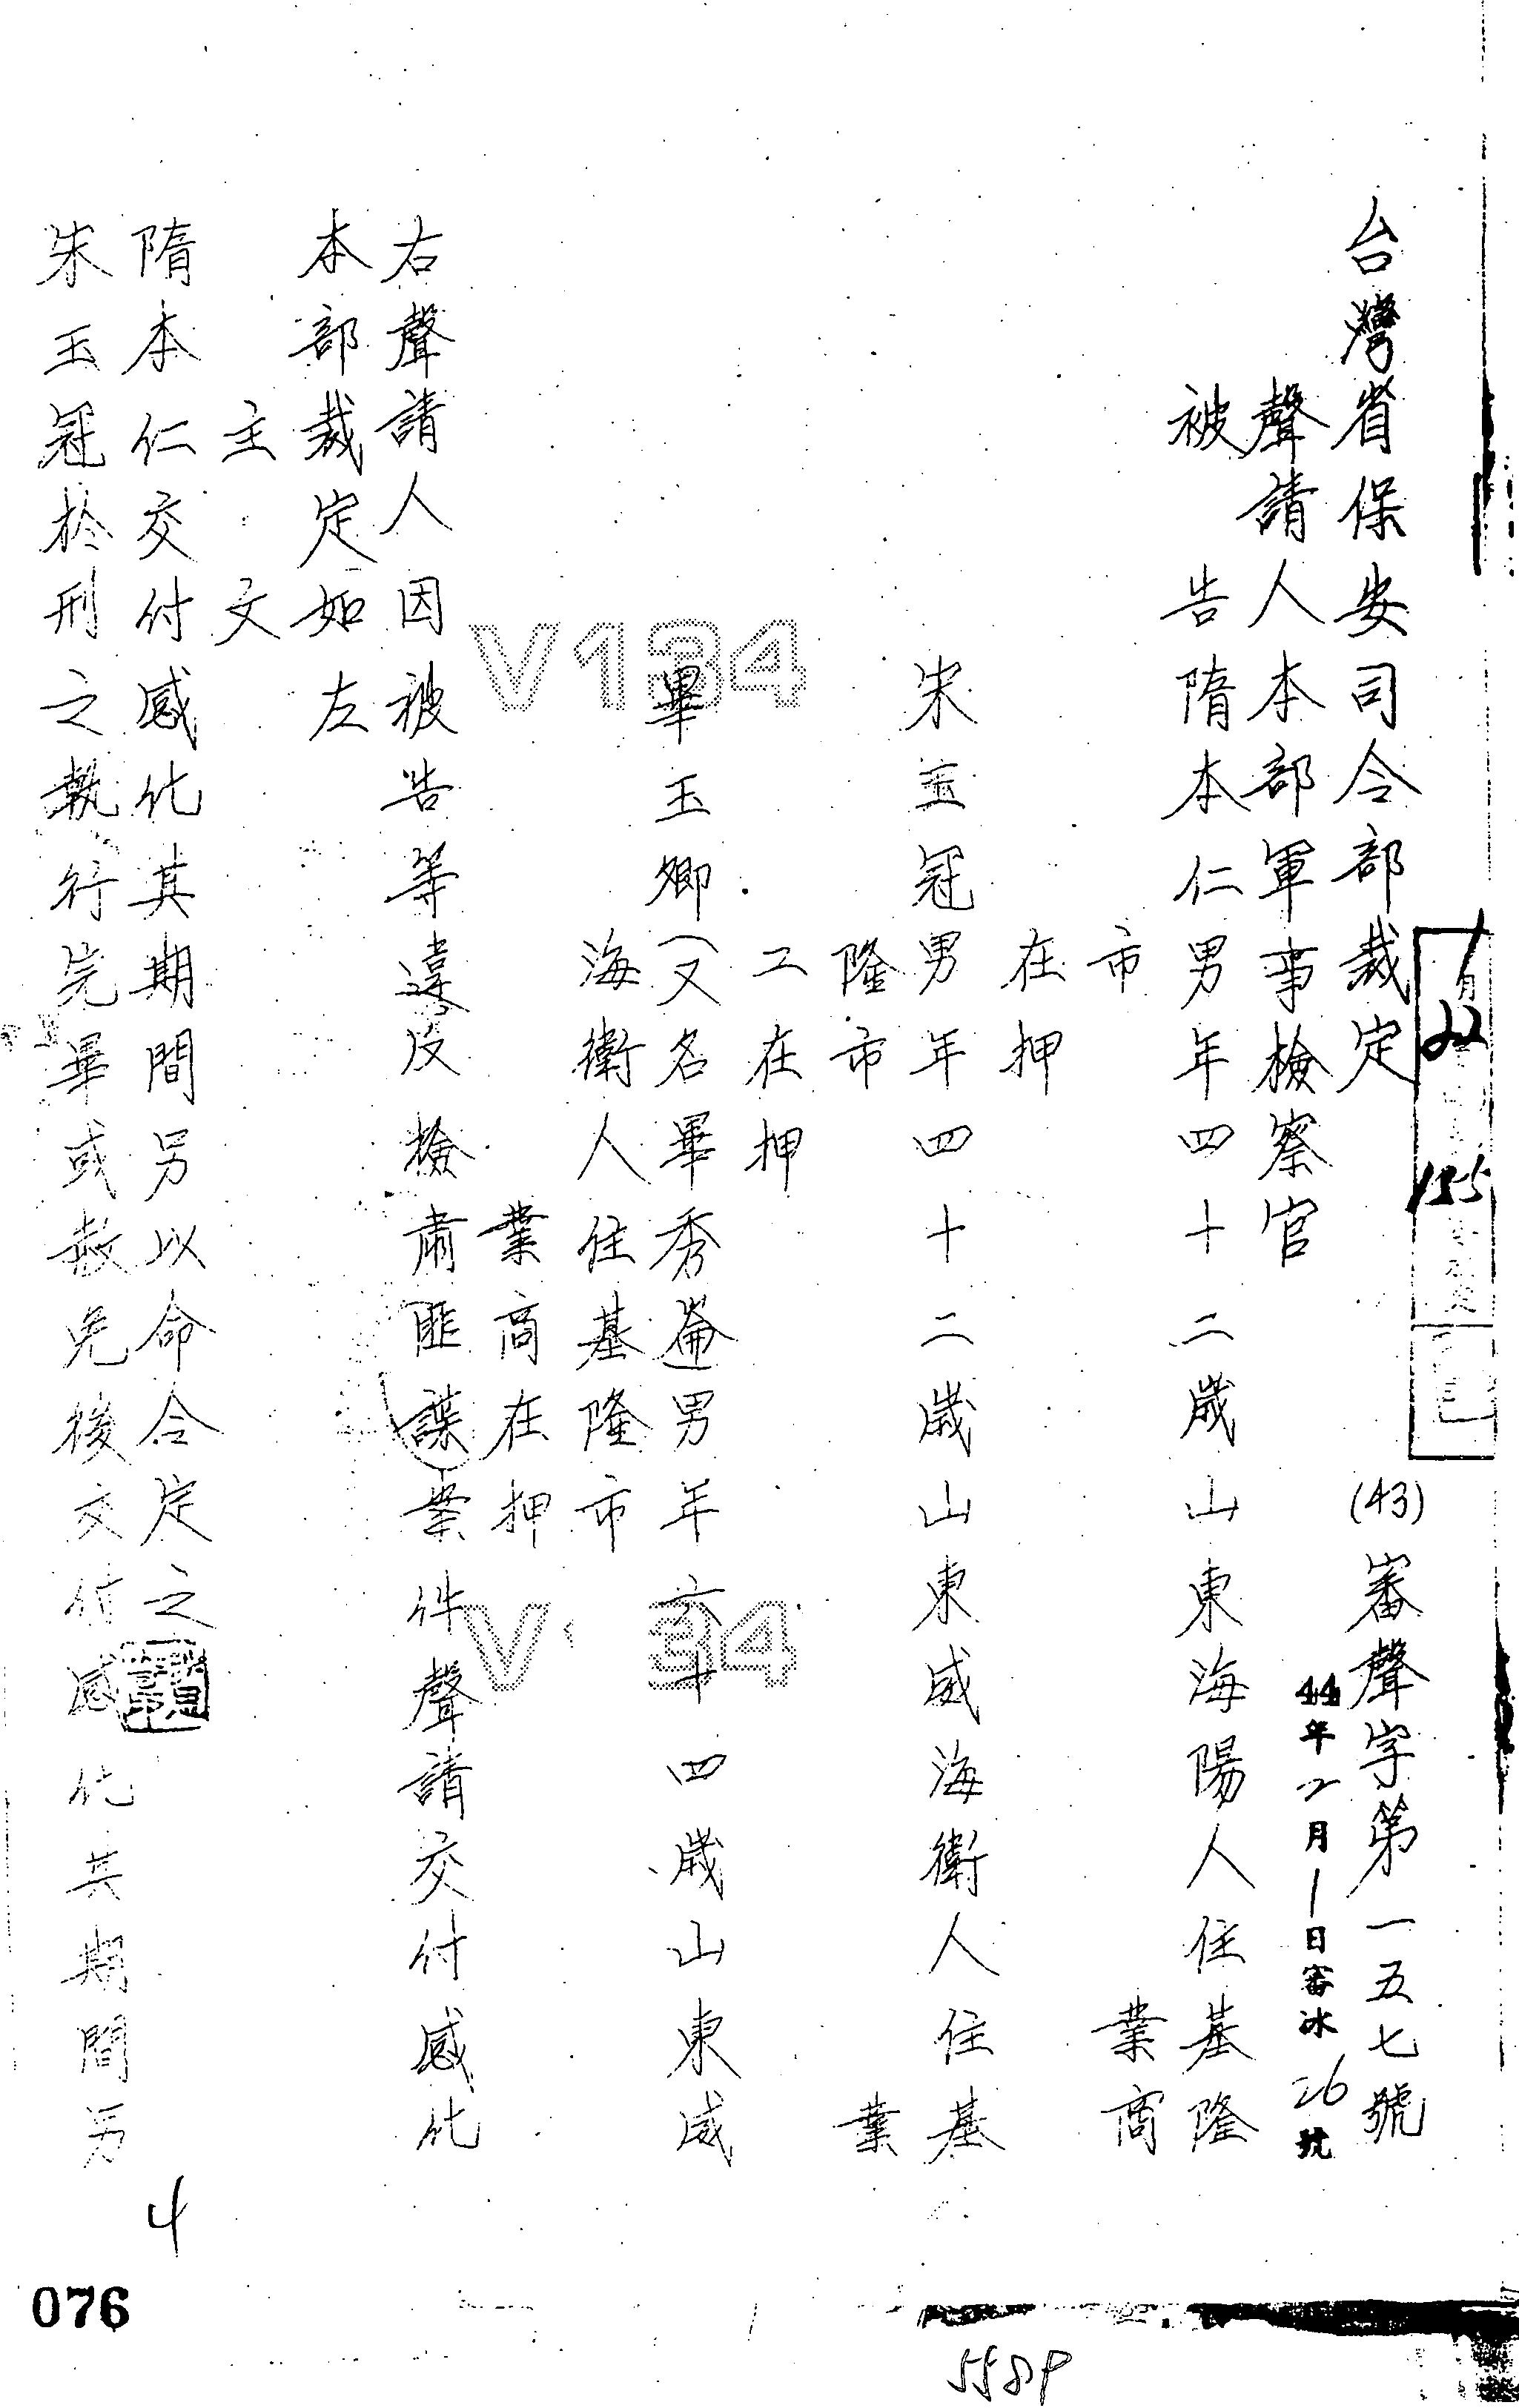 台灣省保安司令部裁定
(43)審聲字第一五七號
44年2月1日審冰26號
聲請人本部軍事檢察官
被告隋本仁男年四十二歲山東海陽人住基隆
市
業商
在押
宋玉冠男年四十二歲山東威海衛人住基
隆市
業
工在押
畢玉卿(又名畢秀崙男年六十四歲山東威
海衛人住基隆市
業商在押
右聲請人因被告等違反檢肅匪諜案件聲請交付感化
本部裁定如左
主文
隋本仁交付感化其期間另以命令定之
朱玉冠於刑之執行完畢或赦免後交付感化其期間另
4
076
5589
V134
V 34
月
22
155